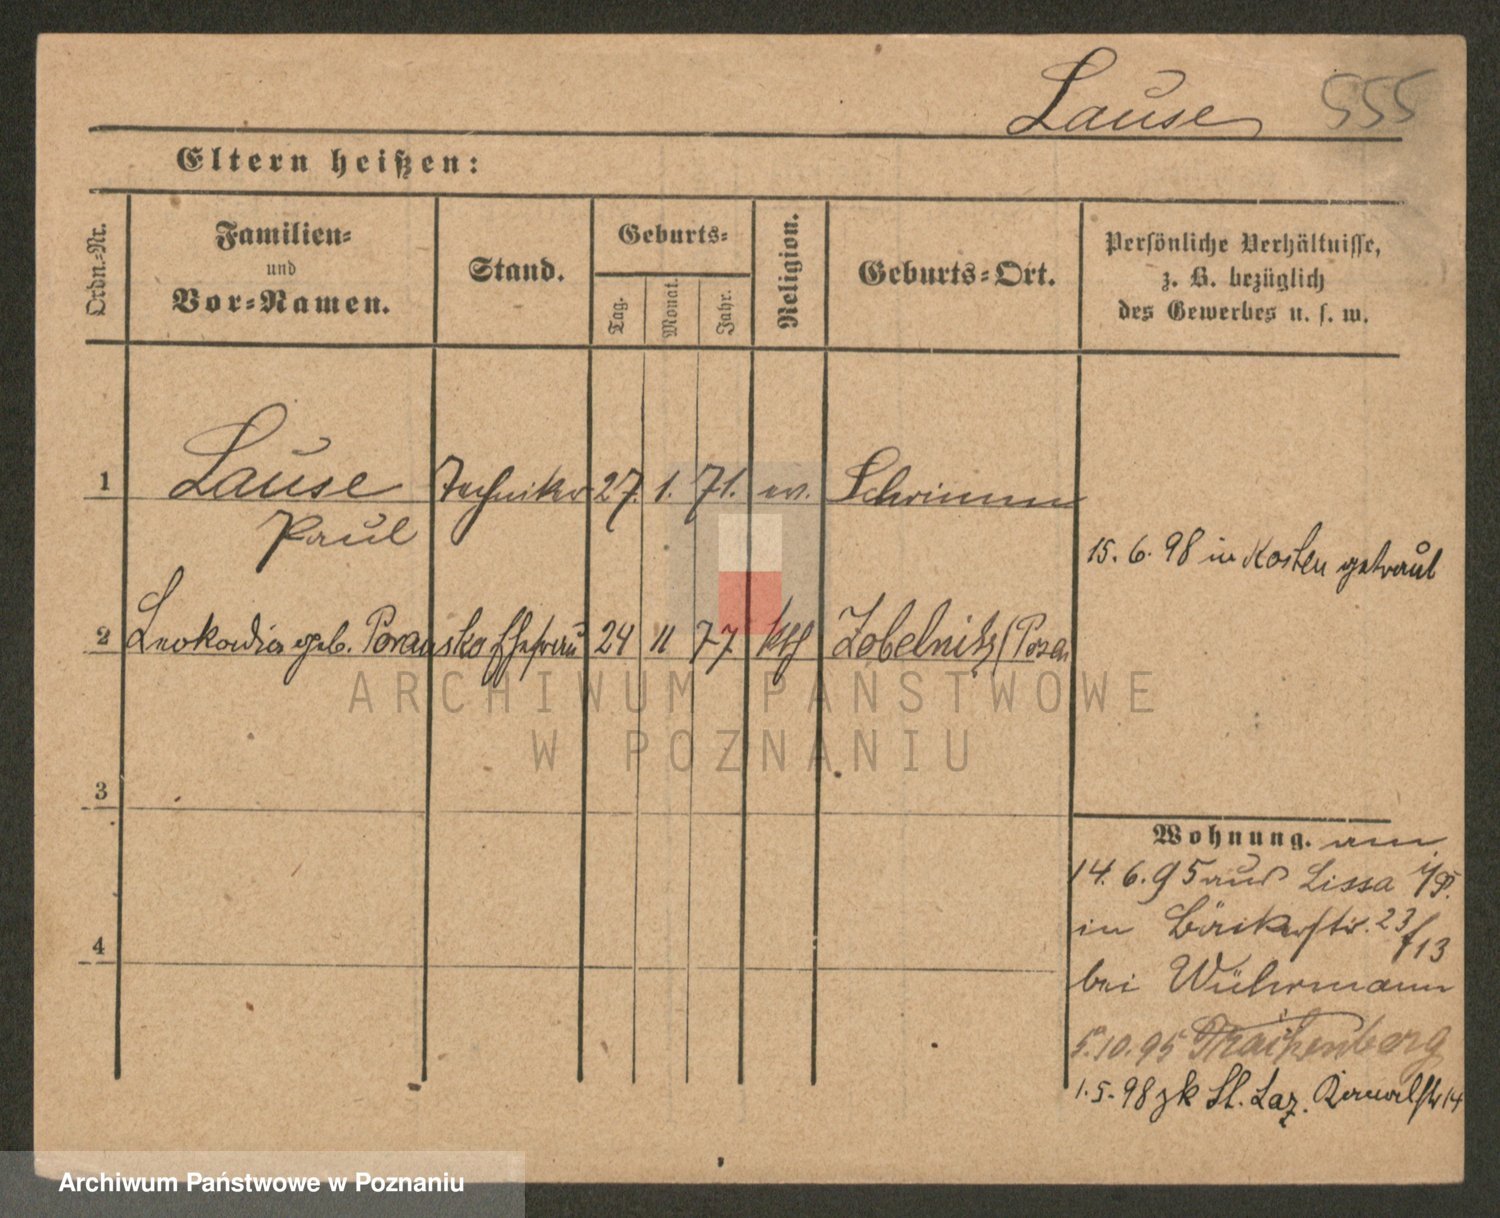 Lause 555
Eltern heißen:
Ordn.-Nr.
Familien-
und
Vor-Namen.
Stand.
Geburts-
Tag.
Monat.
Jahr.
Religion.
Geburts-Ort.
Persönliche Verhältnisse,
z. B. bezüglich
des Gewerbes u. s. w.
1 Lause Techniker 27. 1. 71. ev. Schrimm
Paul
15. 6. 98 in Kosten getraut
2 Leokadia geb. Ehefrau 24 11 77 kth Zobelnitz (Posen
ARCHIWUM PAŃSTWOWE
W POZNANIU
3
Wohnung. am
14. 6. 95 aus Lissa i/P.
in Bäckerstr. 23
/13
4
bei Wührmann
5.10.95 Trachenberg
1.5.98 zk St. Laz. 14
Archiwum Państwowe w Poznaniu